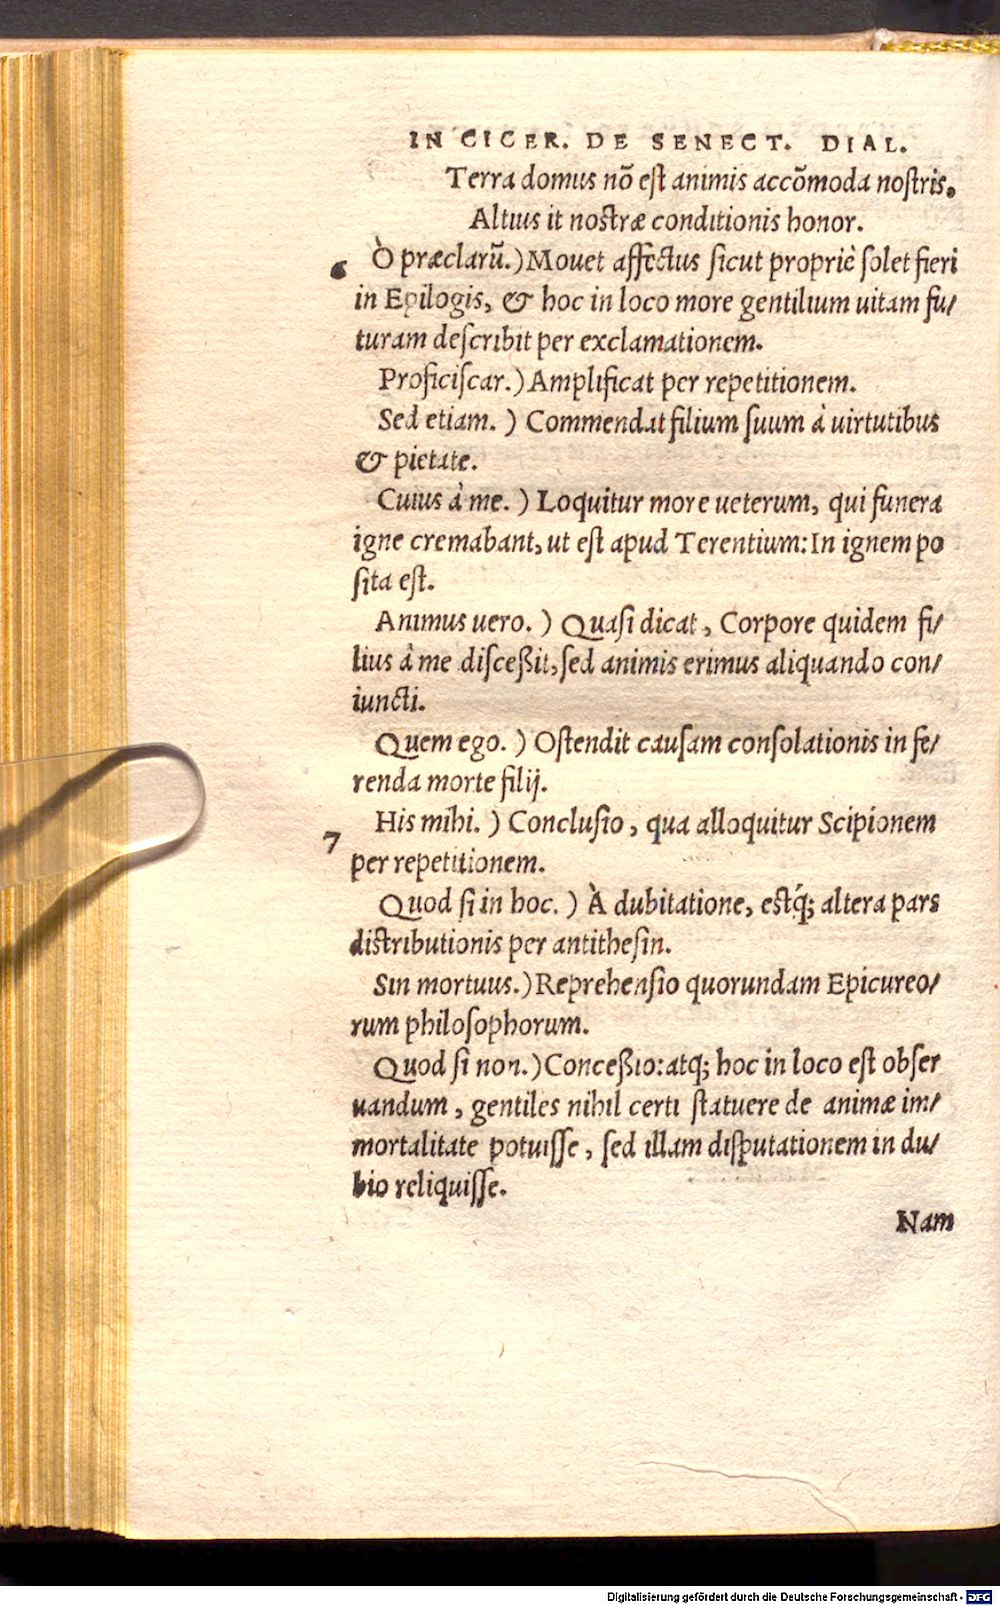 IN CICER. DE SENECT. DIAL.
Terra domus nõ est animis accõmoda nostris.
Altius it nostræ conditionis honor.
6 Ò præclarũ.) Mouet affectus sicut propriè solet fieri
in Epilogis, & hoc in loco more gentilium uitam fu/
turam describit per exclamationem.
Proficiscar.) Amplificat per repetitionem.
Sed etiam.) Commendat filium suum à uirtutibus
& pietate.
Cuius à me.) Loquitur more ueterum, qui funera
igne cremabant, ut est apud Terentium: In ignem po
sita est.
Animus uero.) Quasi dicat, Corpore quidem fi/
lius à me disceßit, sed animis erimus aliquando con/
iuncti.
Quem ego.) Ostendit causam consolationis in fe/
renda morte filij.
7 His mihi.) Conclusio, qua alloquitur Scipionem
per repetitionem.
Quod si in hoc.) À dubitatione, estq́; altera pars
distributionis per antithesin.
Sin mortuus.) Reprehensio quorundam Epicureo/
rum philosophorum.
Quod si non.) Conceßio: atq; hoc in loco est obser
uandum, gentiles nihil certi statuere de animæ im/
mortalitate potuisse, sed illam disputationem in du/
bio reliquisse.
Nam
Digitalisierung gefördert durch die Deutsche Forschungsgemeinschaft - DFG